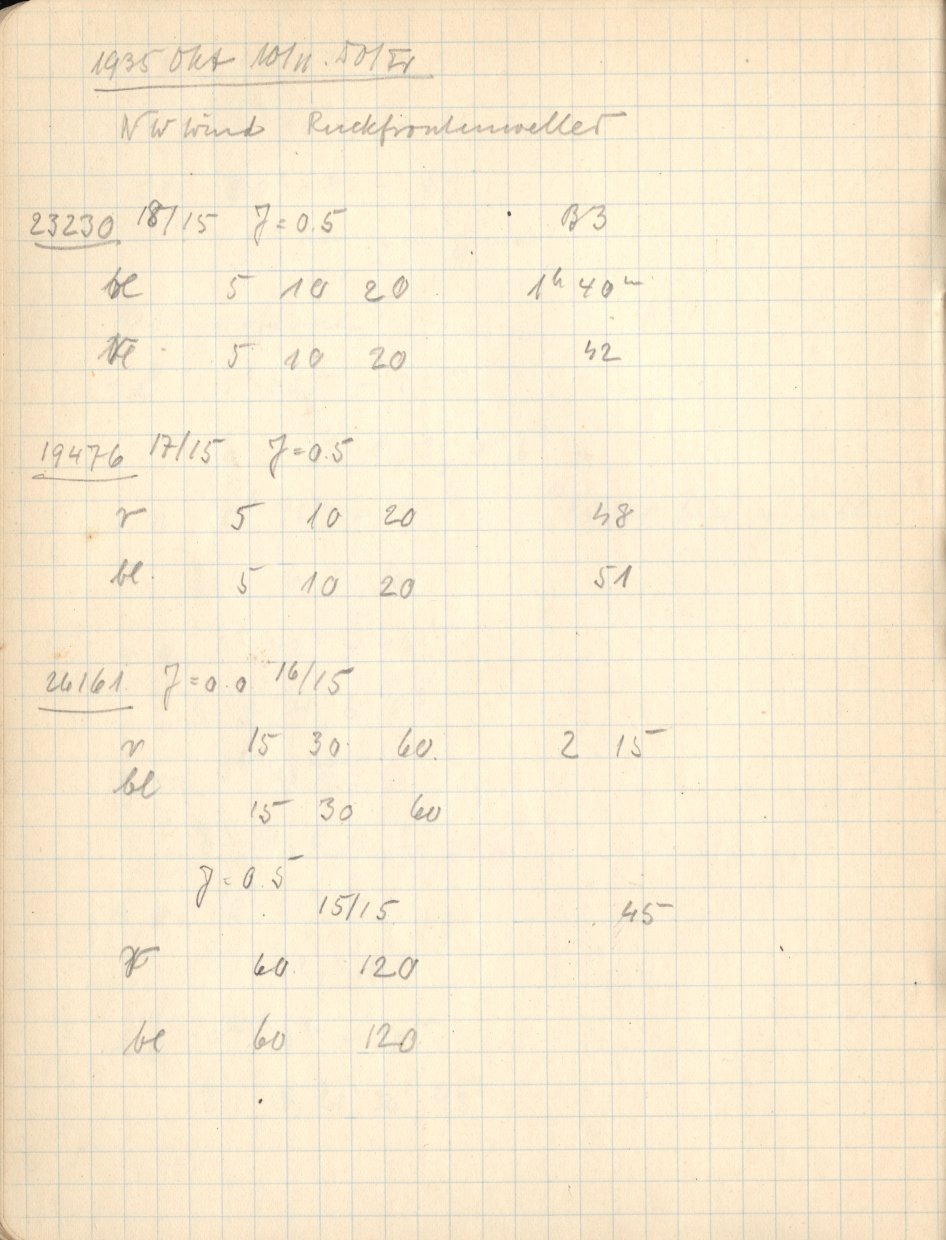 1935 Okt 10/11. DO/Er
NW Wind Ruckfrontenwetter
23230 18/15 J=0.5 B3
bl 5 10 20 1h 40m
5 10 20 42
19476 17/15 J=0.5
r 5 10 20 48
bl. 5 10 20 51
26161 J=0.0 16/15
r 15 30 60. 2 15
bl
15 30 60
J=0.5
15/15 45
r 60 120
bl 60 120